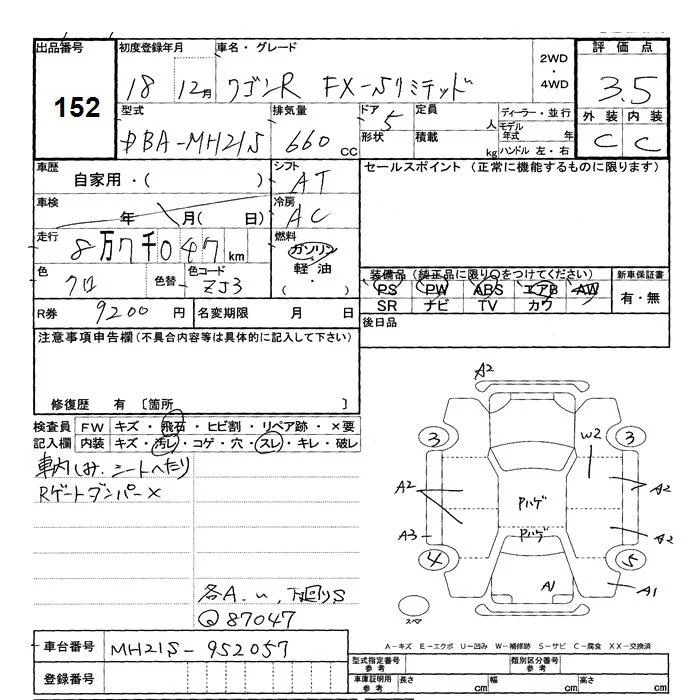 出品番号 初度登録年月 車名・グレード 評価点
152
18 12月 ワゴンR FX-Sリミテッド 2WD・4WD 3.5
型式 排気量 ドア 定員 ディーラー・並行 外装 内装
DBA-MH21S 660cc 5 人 モデル年式 年 C C
形状 積載 kg ハンドル 左・右
車歴 シフト セールスポイント(正常に機能するものに限ります)
自家用・( ) AT
車検 冷房
年 月( 日) AC
走行 燃料
8万7千047km ガソリン
軽油
( ・ )
色 色替 色コード 装備品(純正品に限り○をつけてください) 新車保証書
クロ ZJ3 PS PW ABS エアB AW 有・無
SR ナビ TV カワ
R券 9200円 名変期限 月 日 後日品
注意事項申告欄(不具合内容等は具体的に記入して下さい)
修復歴 有 [箇所
検査員 FW キズ・飛石・ヒビ割・リペア跡・×要
記入欄 内装 キズ・汚レ・コゲ・穴・スレ・キレ・破レ
車内しみ、シートへたり
Rゲートダンパー×
各A.u、下回りS
Q87047
A2
3 3
W2
A2 A2
Pハゲ
A3 Pハゲ A2
4 5
A1 A1
スペア
A-キズ E-エクボ U-凹み W-補修跡 S-サビ C-腐食 XX-交換済
車台番号 MH21S-952057
型式指定番号 参考 類別区分番号 参考
登録番号
車庫証明用 参考 長さ cm 幅 cm 高さ cm